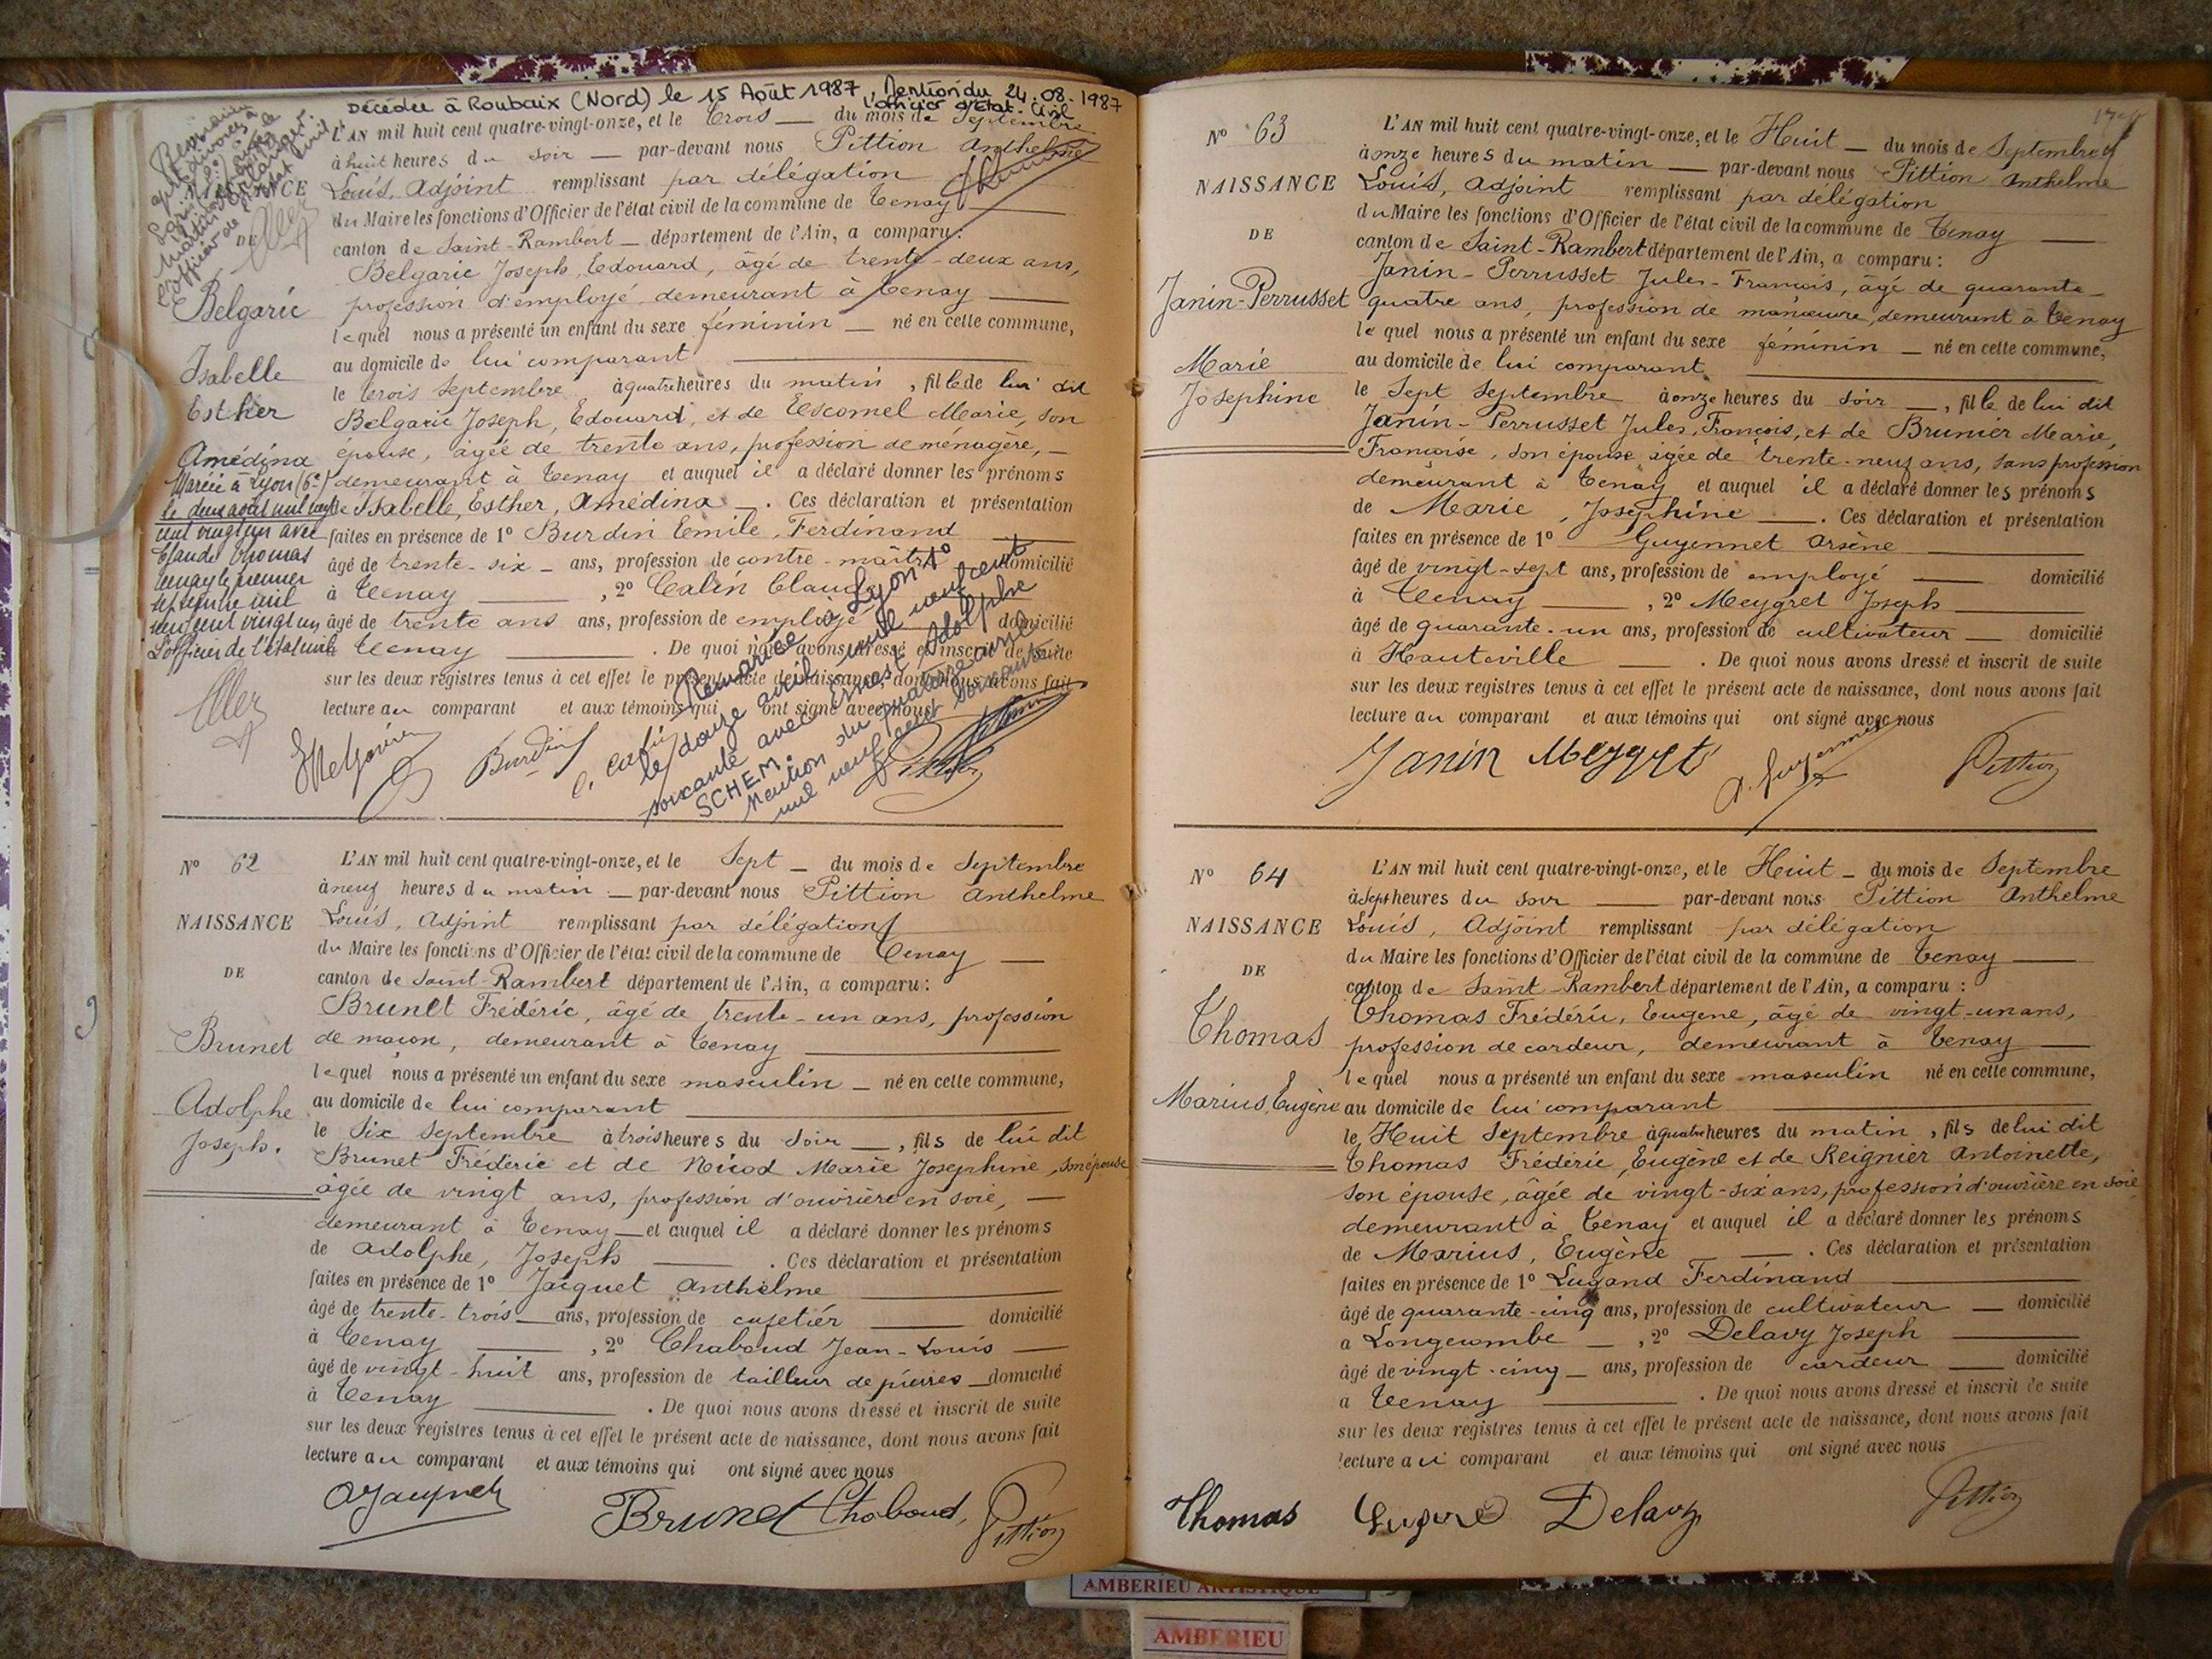 Décédée à Roubaix (Nord) le 15 Août 1987, Mention du 24.08.1987
L'officier d'Etat-Civil
L'AN mil huit cent quatre-vingt-onze, et le trois — du mois de Septembre
à huit heures du soir — par-devant nous Pittion Anthelme
Louis, Adjoint remplissant par délégation
du Maire les fonctions d'Officier de l'état civil de la commune de Tenay —
canton de Saint-Rambert — département de l'Ain, a comparu :
Belgaric Joseph, Edouard, âgé de trente-deux ans,
profession d'employé demeurant à Tenay —
lequel nous a présenté un enfant du sexe féminin — né en cette commune,
au domicile de lui comparant —
le trois Septembre à quatre heures du matin, fille de lui dit
Belgaric Joseph, Edouard, et de Escomel Marie, son
épouse, âgée de trente ans, profession de ménagère, —
demeurant à Tenay et auquel il a déclaré donner les prénoms
de Isabelle, Esther, Amédina —. Ces déclaration et présentation
faites en présence de 1º Burdin Emile, Ferdinand
âgé de trente-six — ans, profession de contre-maître domicilié
à Tenay —, 2º Calin Claude
âgé de trente ans ans, profession de employé domicilié
à Tenay —. De quoi nous avons dressé et inscrit de suite
sur les deux registres tenus à cet effet le présent acte de naissance, dont nous avons fait
lecture au comparant et aux témoins qui ont signé avec nous
DE
Belgaric
Isabelle
Esther
Amédina
Mariée à Lyon (6e)
le deux août mil neuf
cent vingt un avec
Claude Thomas
Tenay le premier
septembre mil
neuf cent vingt un
L'officier de l'état civil
Remariée à Lyon 1º
le douze avril mil neuf cent
soixante avec Ernest Adolphe
SCHEM.
Mention du quatorze avril
mil neuf cent soixante
Burdin
Pittion
Nº 62
NAISSANCE
DE
Brunet
Adolphe
Joseph.
L'AN mil huit cent quatre-vingt-onze, et le Sept — du mois de Septembre
à neuf heures du matin — par-devant nous Pittion Anthelme
Louis, Adjoint remplissant par délégation
du Maire les fonctions d'Officier de l'état civil de la commune de Tenay —
canton de Saint-Rambert département de l'Ain, a comparu :
Brunet Frédéric, âgé de trente-un ans, profession
de maçon, demeurant à Tenay —
lequel nous a présenté un enfant du sexe masculin — né en cette commune,
au domicile de lui comparant —
le Six Septembre à trois heures du soir —, fils de lui dit
Brunet Frédéric et de Nicod Marie Josephine, son épouse
âgée de vingt ans, profession d'ouvrière en soie, —
demeurant à Tenay — et auquel il a déclaré donner les prénoms
de Adolphe, Joseph —. Ces déclaration et présentation
faites en présence de 1º Jacquet Anthelme —
âgé de trente-trois — ans, profession de cafetier — domicilié
à Tenay —, 2º Chaboud Jean-Louis —
âgé de vingt-huit ans, profession de tailleur de pierres — domicilié
à Tenay —. De quoi nous avons dressé et inscrit de suite
sur les deux registres tenus à cet effet le présent acte de naissance, dont nous avons fait
lecture au comparant et aux témoins qui ont signé avec nous
Brunet Chaboud, Pittion
Nº 63
NAISSANCE
DE
Janin-Perrusset
Marie
Josephine
L'AN mil huit cent quatre-vingt-onze, et le Huit — du mois de Septembre
à onze heures du matin — par-devant nous Pittion Anthelme
Louis, Adjoint remplissant par délégation
du Maire les fonctions d'Officier de l'état civil de la commune de Tenay —
canton de Saint-Rambert département de l'Ain, a comparu :
Janin-Perrusset Jules-François, âgé de quarante-
quatre ans, profession de manœuvre, demeurant à Tenay
lequel nous a présenté un enfant du sexe féminin — né en cette commune,
au domicile de lui comparant —
le Sept Septembre à onze heures du soir —, fille de lui dit
Janin-Perrusset Jules, François, et de Brunier Marie,
Françoise, son épouse âgée de trente-neuf ans, sans profession
demeurant à Tenay et auquel il a déclaré donner les prénoms
de Marie, Josephine —. Ces déclaration et présentation
faites en présence de 1º Guyennet Arsène —
âgé de vingt-sept ans, profession de employé — domicilié
à Tenay —, 2º Meygret Joseph —
âgé de quarante-un ans, profession de cultivateur — domicilié
à Hauteville —. De quoi nous avons dressé et inscrit de suite
sur les deux registres tenus à cet effet le présent acte de naissance, dont nous avons fait
lecture au comparant et aux témoins qui ont signé avec nous
Janin Meygret A. Guyennet Pittion
Nº 64
NAISSANCE
DE
Thomas
Marius, Eugène
L'AN mil huit cent quatre-vingt-onze, et le Huit — du mois de Septembre
à Sept heures du soir — par-devant nous Pittion Anthelme
Louis, Adjoint remplissant par délégation
du Maire les fonctions d'Officier de l'état civil de la commune de Tenay —
canton de Saint-Rambert département de l'Ain, a comparu :
Thomas Frédéric, Eugène, âgé de vingt-un ans,
profession de cardeur, demeurant à Tenay —
lequel nous a présenté un enfant du sexe masculin né en cette commune,
au domicile de lui comparant —
le Huit Septembre à quatre heures du matin, fils de lui dit
Thomas Frédéric, Eugène et de Reignier Antoinette,
son épouse, âgée de vingt-six ans, profession d'ouvrière en soie
demeurant à Tenay et auquel il a déclaré donner les prénoms
de Marius, Eugène —. Ces déclaration et présentation
faites en présence de 1º Lugand Ferdinand —
âgé de quarante-cinq ans, profession de cultivateur — domicilié
à Longecombe —, 2º Delavy Joseph —
âgé de vingt-cinq — ans, profession de cardeur — domicilié
à Tenay —. De quoi nous avons dressé et inscrit de suite
sur les deux registres tenus à cet effet le présent acte de naissance, dont nous avons fait
lecture au comparant et aux témoins qui ont signé avec nous
Thomas Delavy Pittion
AMBERIEU ARTISTIQUE
AMBERIEU